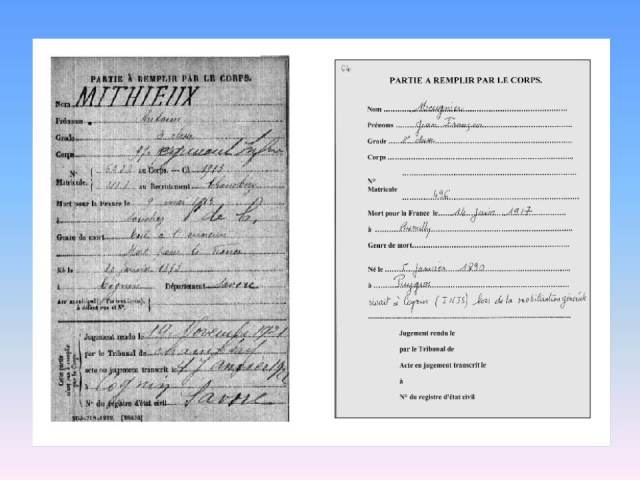 PARTIE À REMPLIR PAR LE CORPS.
Nom MITHIEUX
Prénoms Antoine
Grade 2e classe
Corps 97e régiment
N° Matricule. au Corps. — Cl. 1913
au Recrutement Chambéry
Mort pour la France le 9 mai 1915
à
Genre de mort Tué à l'ennemi
Mort pour la France
Né le janvier 1893
à Cognin Département Savoie
Arr. municipal (Paris et Lyon),
à défaut rue et N°.
Cette partie n'est pas à remplir par le Corps.
Jugement rendu le 19 Novembre 1921
par le Tribunal de Chambéry
acte ou jugement transcrit le Janvier
à Cognin
N° du registre d'état civil Savoie
PARTIE A REMPLIR PAR LE CORPS.
Nom Meugnier
Prénoms Jean François
Grade 2e classe
Corps
N°
Matricule
696
Mort pour la France le 16 Juin 1917
à
Genre de mort
Né le 5 janvier 1890
à Puygros
vivait à Cognin (INJS) lors de la mobilisation générale
Jugement rendu le
par le Tribunal de
Acte en jugement transcrit le
à
N° du registre d'état civil